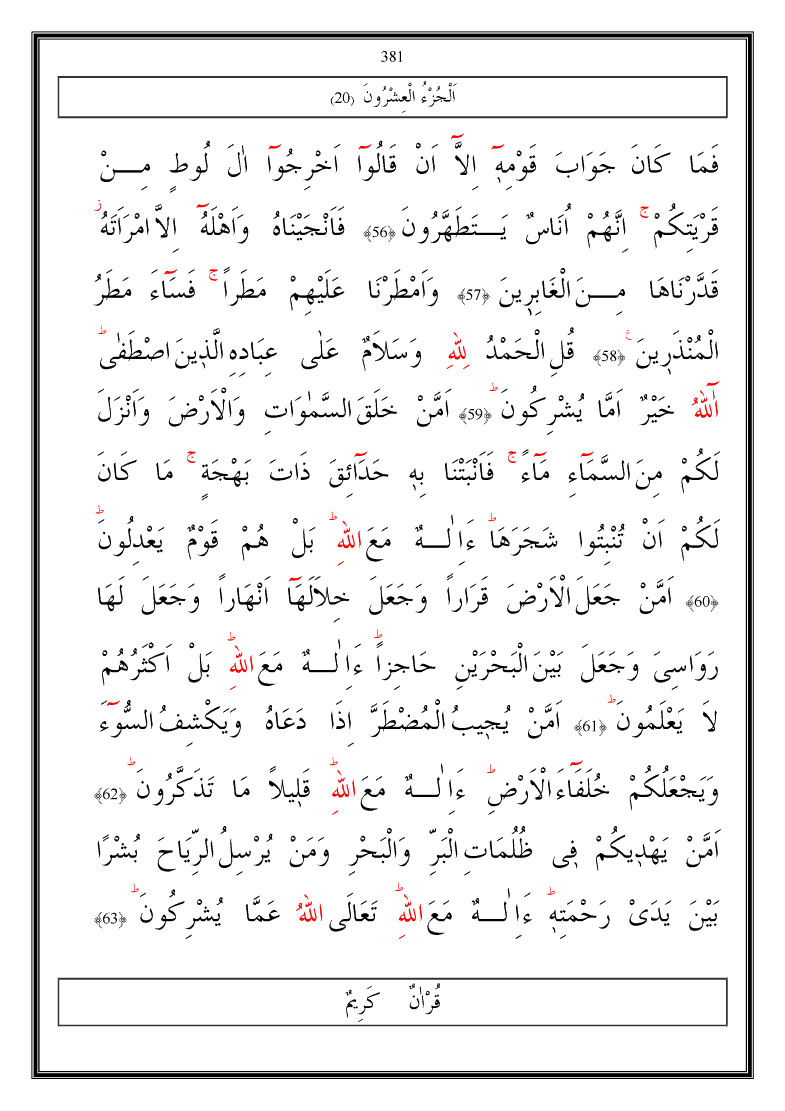 381
اَلْجُزْءُ الْعِشْرُونَ (20)
فَمَا كَانَ جَوَابَ قَوْمِه۪ٓ اِلَّٓا اَنْ قَالُٓوا اَخْرِجُٓوا اٰلَ لُوطٍ مِـــنْ
قَرْيَتِكُمْۚ اِنَّهُمْ اُنَاسٌ يَـــتَطَهَّرُونَ ﴿56﴾ فَاَنْجَيْنَاهُ وَاَهْلَهُٓ اِلَّا امْرَاَتَهُۘ
قَدَّرْنَاهَا مِـــنَ الْغَابِر۪ينَ ﴿57﴾ وَاَمْطَرْنَا عَلَيْهِمْ مَطَراًۚ فَسَٓاءَ مَطَرُ
الْمُنْذَر۪ينَ ع ﴿58﴾ قُلِ الْحَمْدُ لِلّٰهِ وَسَلَامٌ عَلٰى عِبَادِهِ الَّذ۪ينَ اصْطَفٰىۜ
آٰللّٰهُ خَيْرٌ اَمَّا يُشْرِكُونَۜ ﴿59﴾ اَمَّنْ خَلَقَ السَّمٰوَاتِ وَالْاَرْضَ وَاَنْزَلَ
لَكُمْ مِنَ السَّمَٓاءِ مَٓاءًۚ فَاَنْبَتْنَا بِه۪ حَدَٓائِقَ ذَاتَ بَهْجَةٍۚ مَا كَانَ
لَكُمْ اَنْ تُنْبِتُوا شَجَرَهَاۜ ءَاِلٰـــهٌ مَعَ اللّٰهِۜ بَلْ هُمْ قَوْمٌ يَعْدِلُونَۜ
﴿60﴾ اَمَّنْ جَعَلَ الْاَرْضَ قَرَاراً وَجَعَلَ خِلَالَهَٓا اَنْهَاراً وَجَعَلَ لَهَا
رَوَاسِىَ وَجَعَلَ بَيْنَ الْبَحْرَيْنِ حَاجِزاًۜ ءَاِلٰـــهٌ مَعَ اللّٰهِۜ بَلْ اَكْثَرُهُمْ
لَا يَعْلَمُونَۜ ﴿61﴾ اَمَّنْ يُج۪يبُ الْمُضْطَرَّ اِذَا دَعَاهُ وَيَكْشِفُ السُّٓوءَ
وَيَجْعَلُكُمْ خُلَفَٓاءَ الْاَرْضِۜ ءَاِلٰـــهٌ مَعَ اللّٰهِۜ قَل۪يلاً مَا تَذَكَّرُونَۜ ﴿62﴾
اَمَّنْ يَهْد۪يكُمْ ف۪ى ظُلُمَاتِ الْبَرِّ وَالْبَحْرِ وَمَنْ يُرْسِلُ الرِّيَاحَ بُشْرًا
بَيْنَ يَدَىْ رَحْمَتِه۪ۜ ءَاِلٰـــهٌ مَعَ اللّٰهِۜ تَعَالَى اللّٰهُ عَمَّا يُشْرِكُونَۜ ﴿63﴾
قُرْاٰنٌ كَرِيمٌ